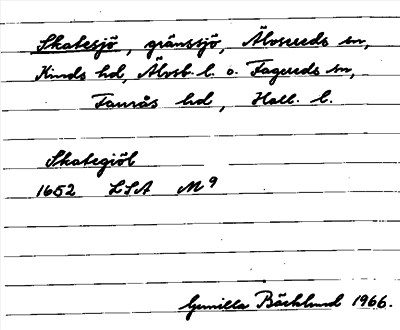 Skatesjö, gränssjö, Älvsereds sn,
Kinds hd, Älvsb. l. o. Fagereds sn,
Faurås hd, Hall. l.
Skategiöl
1652 LSA M 9
Gunilla Bäcklund 1966.